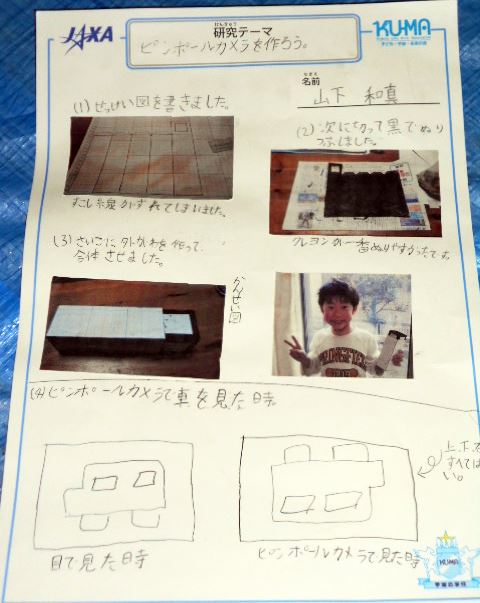 JAXA
けんきゅう
研究テーマ
KUMA
ピンポールカメラを作ろう。
なまえ
名前
山下 和真
(1) せっけい図を書きました。
(2) 次に切って黒でぬり
つぶしました。
すこし線がずれてしまいました。
クレヨンが一番ぬりやすかったです
(3) さいごに外がわを作って、
合体させました。
かんせい図
(4) ピンポールカメラで車を見た時
目で見た時
ピンポールカメラで見た時
KUMA
宇宙の学校